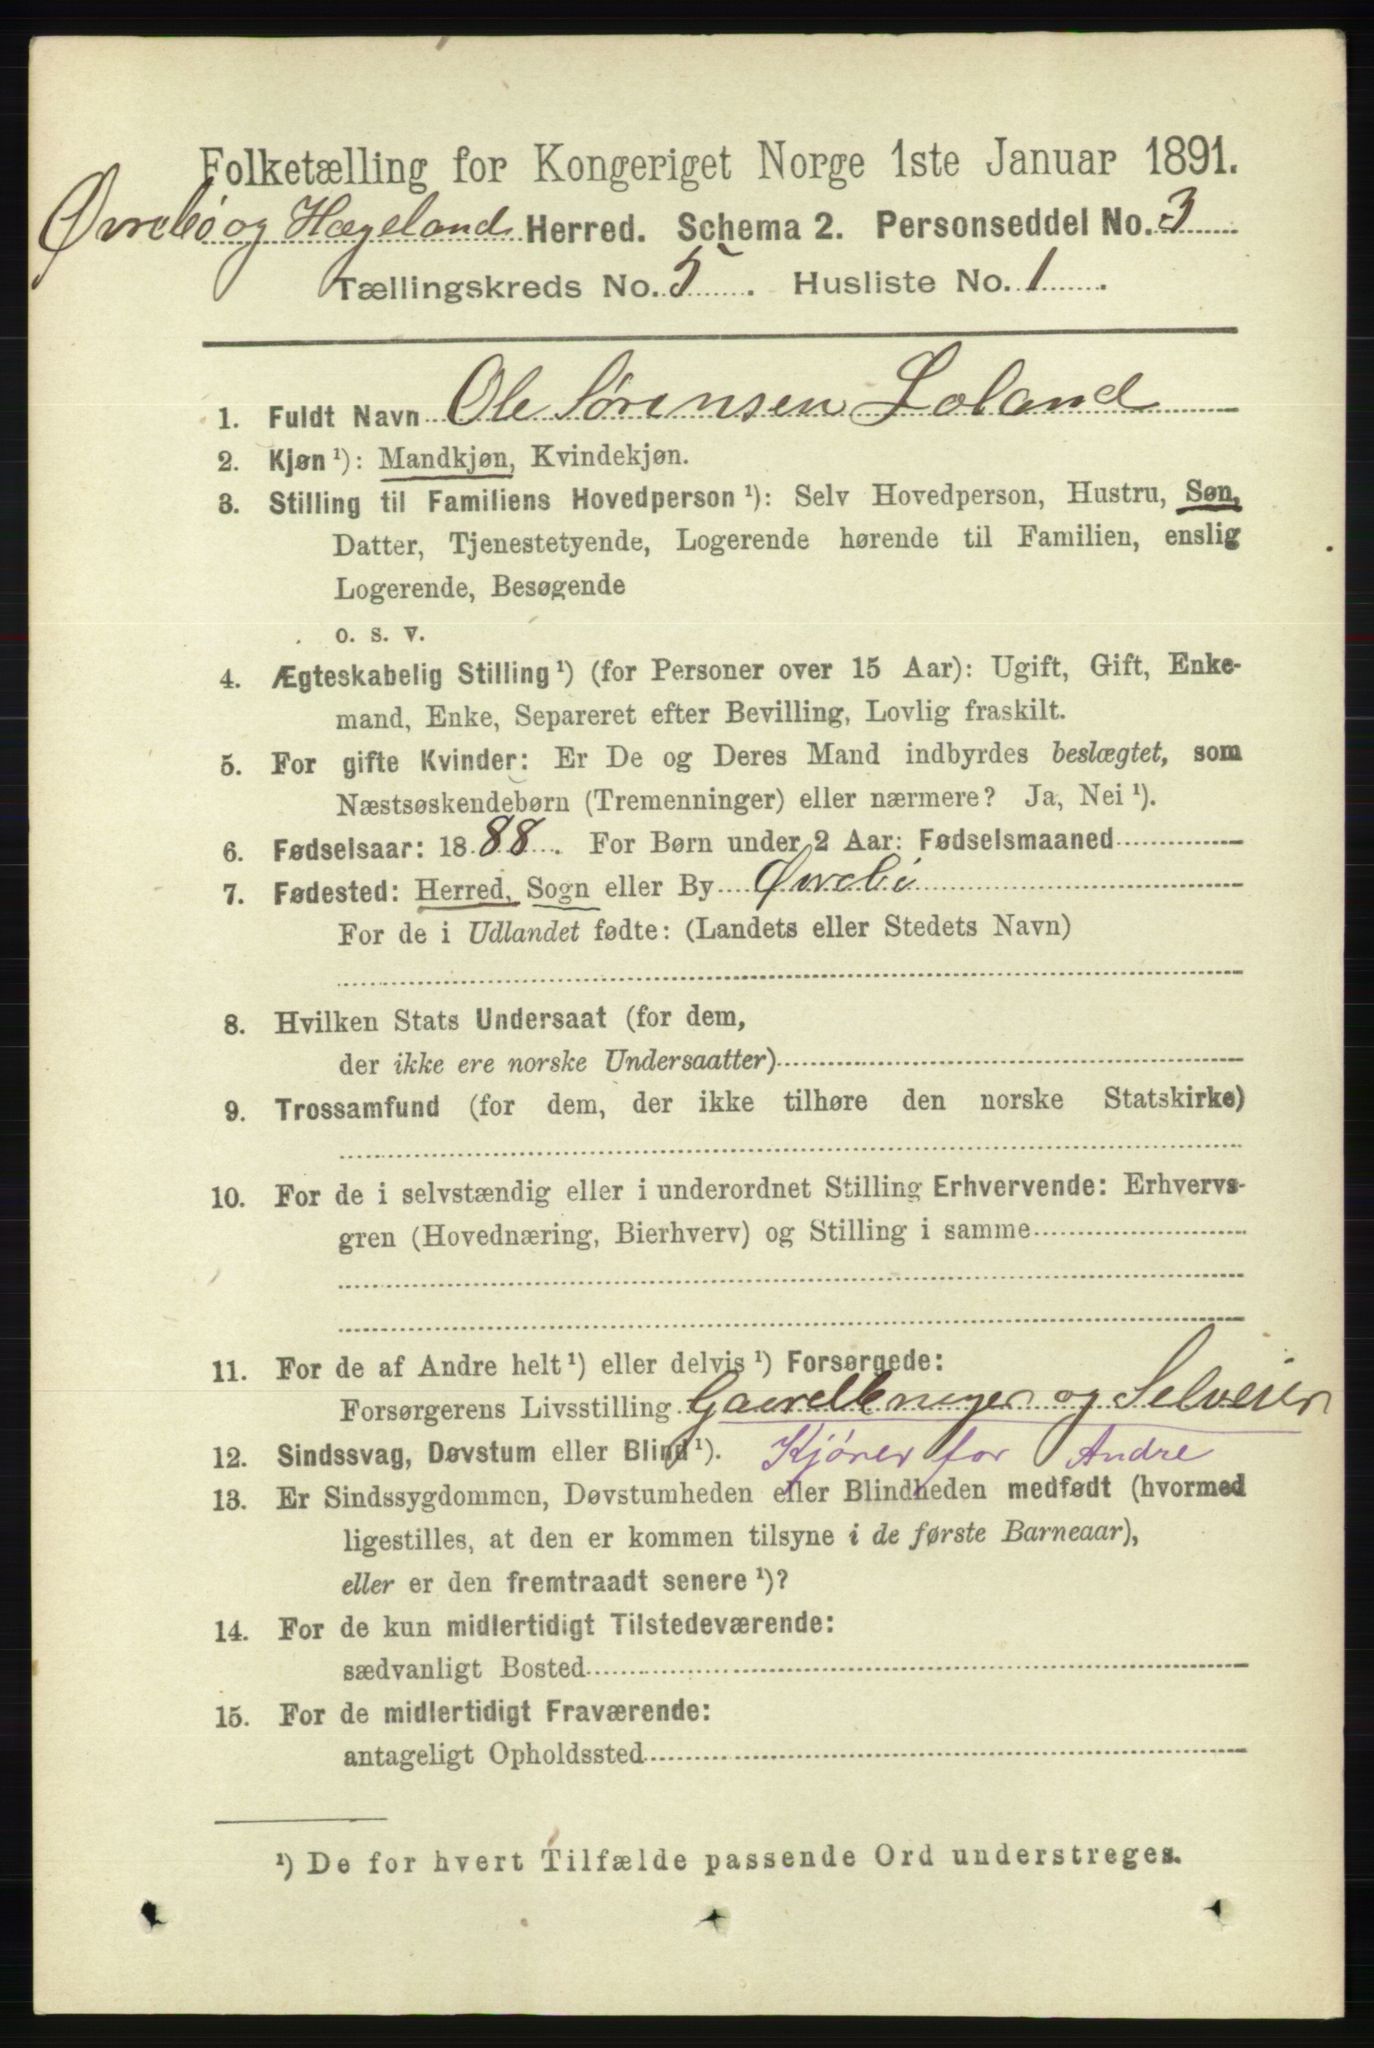 Folketælling for Kongeriget Norge 1ste Januar 1891.
Øvrebø og Hægeland Herred. Schema 2. Personseddel No. 3
Tællingskreds No. 5. Husliste No. 1.
1. Fuldt Navn Ole Sørensen Loland
2. Kjøn ¹): Mandkjøn, Kvindekjøn.
3. Stilling til Familiens Hovedperson ¹): Selv Hovedperson, Hustru, Søn,
Datter, Tjenestetyende, Logerende hørende til Familien, enslig
Logerende, Besøgende
o. s. v.
4. Ægteskabelig Stilling ¹) (for Personer over 15 Aar): Ugift, Gift, Enke-
mand, Enke, Separeret efter Bevilling, Lovlig fraskilt.
5. For gifte Kvinder: Er De og Deres Mand indbyrdes beslægtet, som
Næstsøskendebørn (Tremenninger) eller nærmere? Ja, Nei ¹).
6. Fødselsaar: 1888. For Børn under 2 Aar: Fødselsmaaned
7. Fødested: Herred, Sogn eller By Øvrebø
For de i Udlandet fødte: (Landets eller Stedets Navn)
8. Hvilken Stats Undersaat (for dem,
der ikke ere norske Undersaatter)
9. Trossamfund (for dem, der ikke tilhøre den norske Statskirke)
10. For de i selvstændig eller i underordnet Stilling Erhvervende: Erhvervs-
gren (Hovednæring, Bierhverv) og Stilling i samme
11. For de af Andre helt ¹) eller delvis ¹) Forsørgede:
Forsørgerens Livsstilling og Selveier
12. Sindssvag, Døvstum eller Blind ¹). Kjører for Andre
13. Er Sindssygdommen, Døvstumheden eller Blindheden medfødt (hvormed
ligestilles, at den er kommen tilsyne i de første Barneaar),
eller er den fremtraadt senere ¹)?
14. For de kun midlertidigt Tilstedeværende:
sædvanligt Bosted
15. For de midlertidigt Fraværende:
antageligt Opholdssted
¹) De for hvert Tilfælde passende Ord understreges.